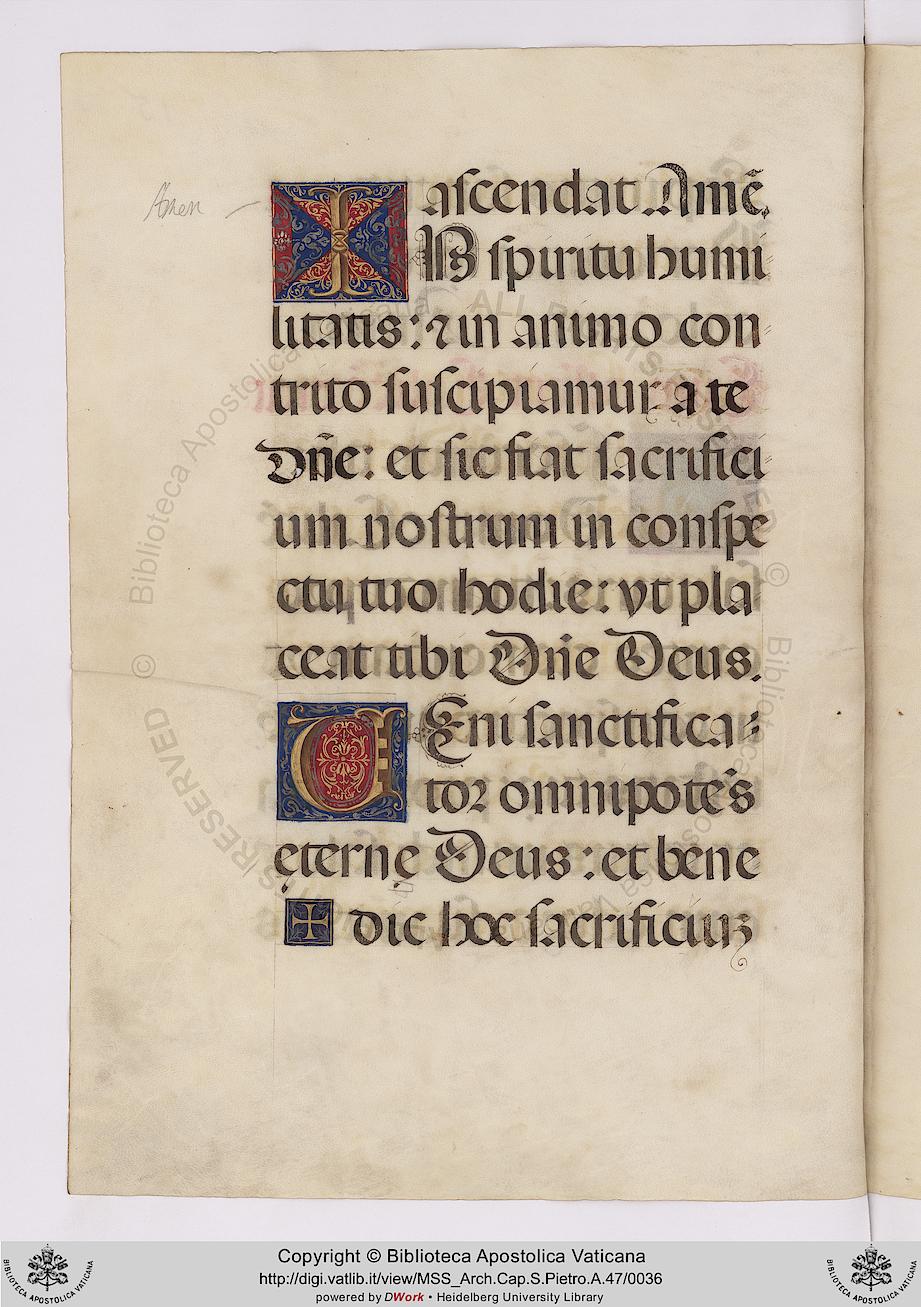 Amen
ascendat Amē.
IN spiritu humi
litatis: ⁊ in animo con-
trito suscipiamur a te
Dñe: et sic fiat sacrifici
um nostrum in conspe
ctu tuo hodie: vt pla
ceat tibi Dñe Deus.
UEni sanctifica-
tor omnipotēs
ęterne Deus: et bene
✠ dic hoc sacrificiuꝫ
Copyright © Biblioteca Apostolica Vaticana
http://digi.vatlib.it/view/MSS_Arch.Cap.S.Pietro.A.47/0036
powered by DWork • Heidelberg University Library
BIBLIOTECA APOSTOLICA VATICANA
BIBLIOTECA APOSTOLICA VATICANA